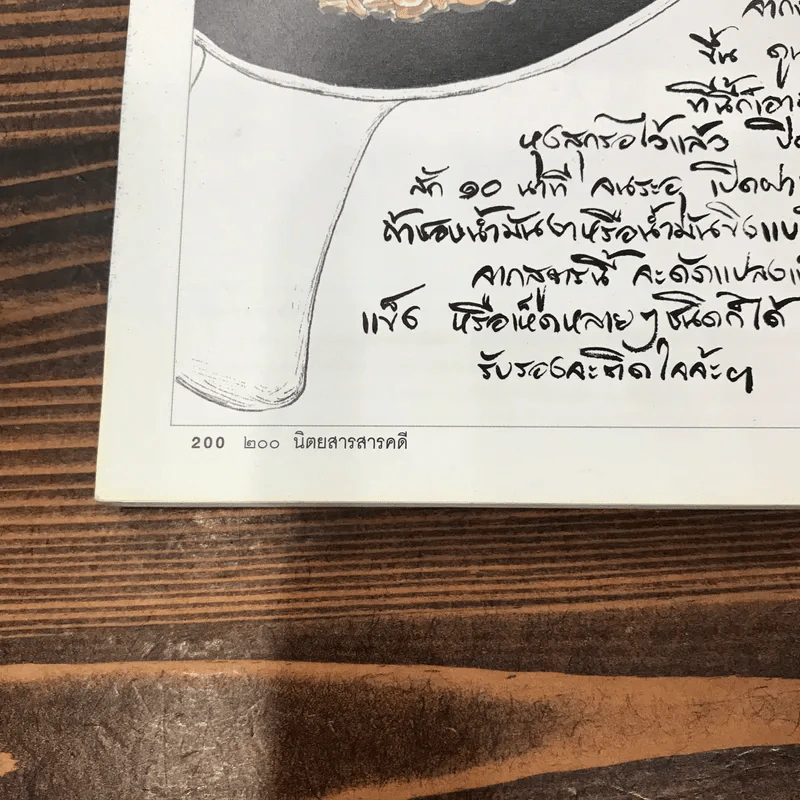 จาก
ขึ้น ดู
ทีนี้ก็เอา
หุงสุกรอไว้แล้ว ปิด
สัก ๑๐ นาที จนระอุ เปิดฝา
ถ้าชอบน้ำมันงาหรือน้ำมันขิงแบบ
จากสูตรนี้ จะดัดแปลงเป็
แข็ง หรือเห็ดหลายๆ ชนิดก็ได้
รับรองจะติดใจจ้ะๆ
200 ๒๐๐ นิตยสารสารคดี